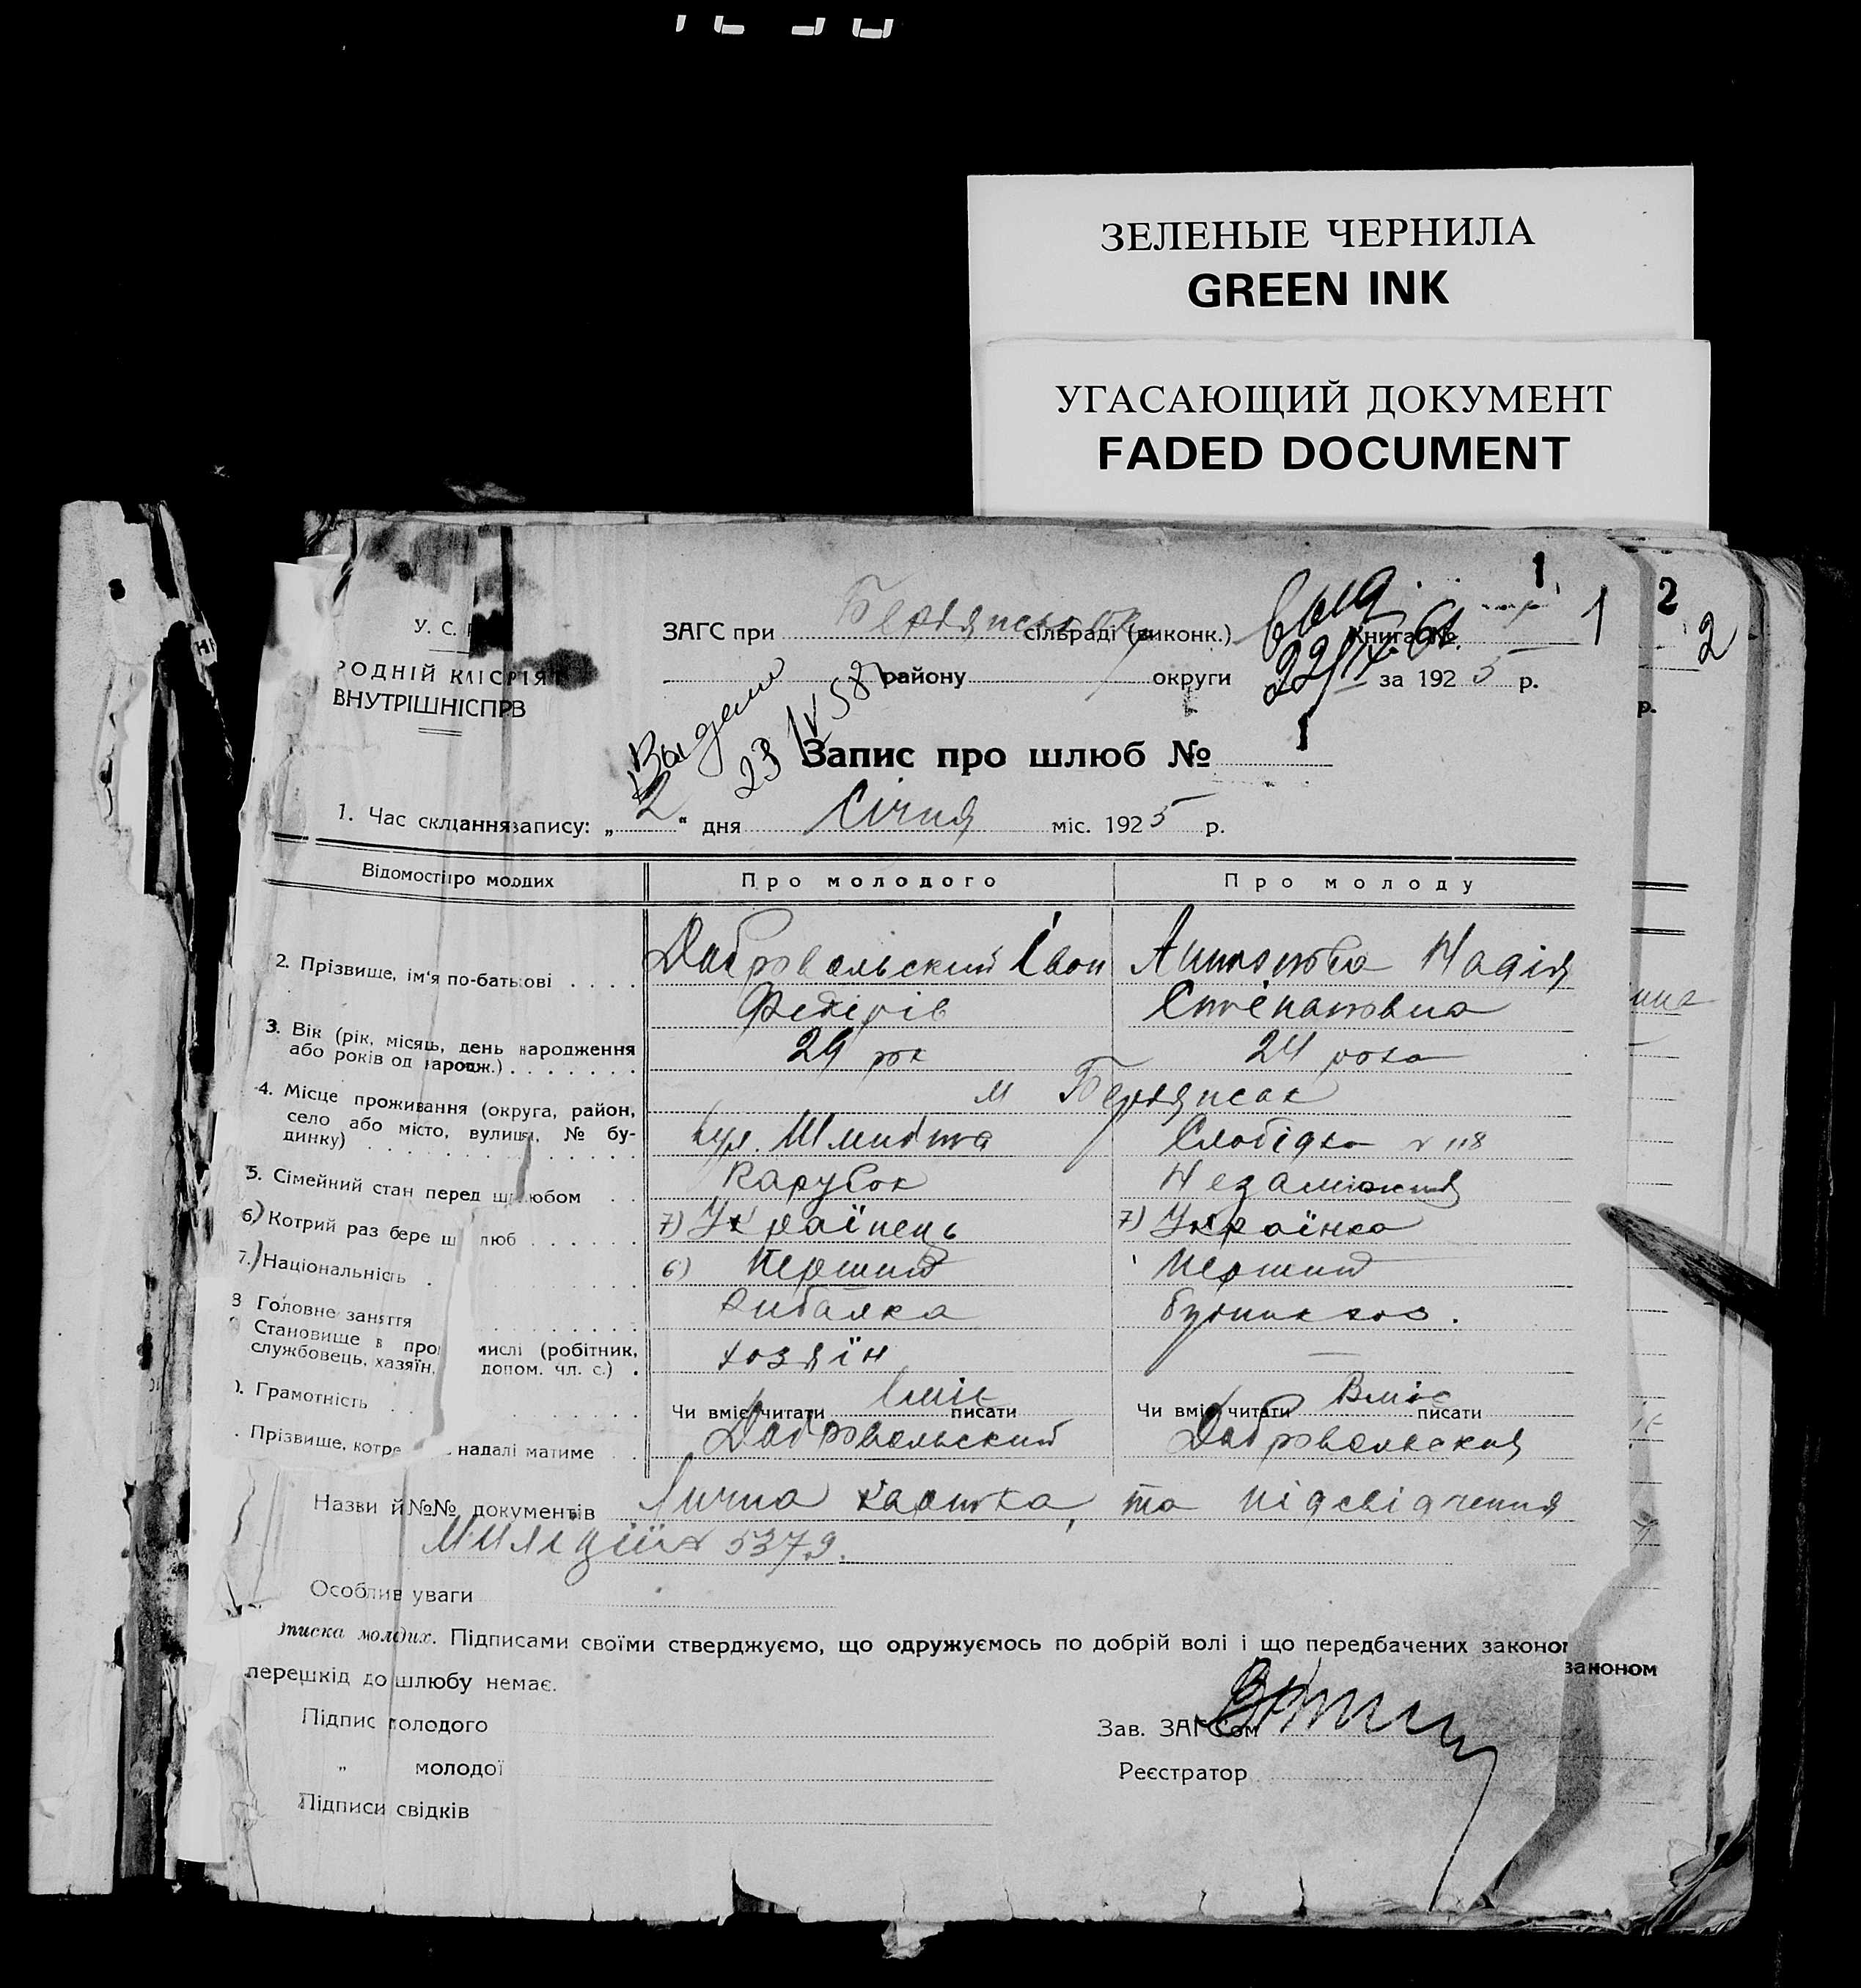 ЗЕЛЕНЫЕ ЧЕРНИЛА
GREEN INK
УГАСАЮЩИЙ ДОКУМЕНТ
FADED DOCUMENT
1 1 2 2
У. С.
РОДНІЙ КМІСРІЯ
ВНУТРІШНІСПРВ
ЗАГС при Бердянськ сільраді (виконк.) Книга №
району округи за 1925 р.
выд 22/IV-61.
Выдано 23 IV 58
Запис про шлюб № 1
1. Час склданнязапису: „2“ дня Січня міс. 1925 р.
Відомостіпро молдих Про молодого Про молоду
2. Прізвище, ім'я по-батькові Добровольский Іван Надія
Федорів Степановна
3. Вік (рік, місяць, день народження
або років од народж.) 29 рок 24 рока
4. Місце проживання (округа, район, м Бердянськ
село або місто, вулиця, № бу-
динку) вул. Шмидта Слобідка № 118
5. Сімейний стан перед шлюбом Парубок Незаміжня
6) Котрий раз бере шлюб 7) Українець 7) Українка
7.) Національність 6) Перший Перший
8 Головне заняття Рибалка
Становище в промислі (робітник,
службовець, хазяїн, допом. чл. с.) хозяїн —
Грамотність Чи вміє читати вміє писати Чи вміє читати Вміє писати
Прізвище, котре надалі матиме Добровольский Добровольская
Назви й №№ документів Лична картка, та підсвідчення
Міліції № 5379.
Особлив уваги
писка молдих. Підписами своїми стверджуємо, що одружуємось по добрій волі і що передбачених законом
перешкід до шлюбу немає.
Підпис молодого Зав. ЗАГСом
„ молодої Реєстратор
Підписи свідків